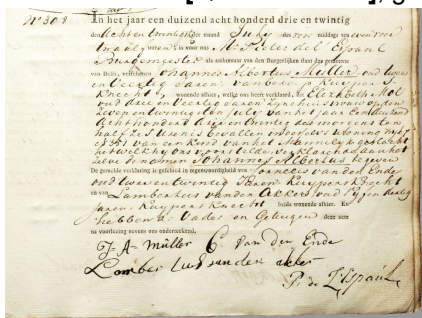 N° 308
In het jaar een duizend acht honderd drie en twintig
den Achtentwintigsten der maand July des voor middags ten elven ure
is voor ons Mr Pieter del Espaul
Burgemeester als ambtenaar van den Burgerlijken staat der gemeente
van Delft, verschenen Johannes Albertus Muller oud twee
en Veertig Jaren van beroep Kuypers
Knecht wonende alhier, welke ons heeft verklaard, dat Elizabeth Mol
oud drie en Veertig Jaren Zyne huisvrouw op den
Zeven en twintigsten July van het Jaar Een duizend
Acht honderd drie en twintig des morgens ten
half zes ure is bevallen in de Woning
van een Kind van het Mannelyk geslacht
het welk hy ons vertoonde verklarende aan het
zelve de namen Johannes Albertus te geven
De gemelde verklaring is geschied in tegenwoordigheid van Johannes van den Ende
oud twee en twintig Jaren Kuypers Knecht
en van Lambertus van den Akker oud Vyf en dertig
Jaren Kuypers Knecht beide wonende alhier. En
hebben de Vader en Getuigen deze acte
na voorlezing nevens ons onderteekend.
J. A. Müller C van den Ende
Lamber tus vanden akker
P. de L'Espaul